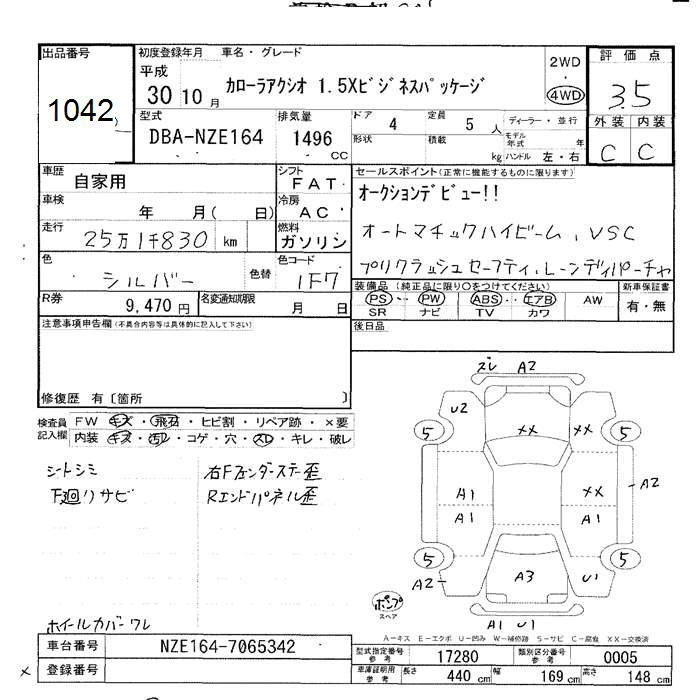 出品番号
1042
初度登録年月
平成
30 10 月
車名・グレード
カローラアクシオ 1.5Xビジネスパッケージ
2WD
・
4WD
評価点
3.5
外装 内装
C C
型式
DBA-NZE164
排気量
1496
CC
ドア 4
定員 5 人
ディーラー・並行
形状
積載
kg
モデル年式 年
ハンドル 左・右
車歴
自家用
シフト
FAT
車検
年 月( 日)
冷房
AC
走行
25万1千830 km
燃料
ガソリン
色
シルバー
色替
色コード
1F7
R券
9,470 円
名変通知期限
月 日
セールスポイント(正常に機能するものに限ります)
オークションデビュー!!
オートマチックハイビーム、VSC
プリクラッシュセーフティ、レーンディパーチャ
装備品 (純正品に限り○をつけてください)
PS・ PW ・ ABS・ エアB AW
SR ナビ TV カワ
新車保証書
有・無
後日品
注意事項申告欄(不具合内容等は具体的に記入して下さい)
修復歴 有〔箇所 〕
検査員
記入欄
FW キズ・飛石・ヒビ割・リペア跡・×要
内装 キズ・汚レ・コゲ・穴・スレ・キレ・破レ
シートシミ
F廻リサビ
右Fフェンダーステー歪
Rエンドパネル歪
ホイールカバーワレ
ズレ A2
U2
XX
XX
5
5
A1
A1
XX
A1
A2
5
5
A2
A3
U1
ポンプ
スペア
A1 U1
A-キズ E-エクボ U-凹み W-補修跡 S-サビ C-腐食 XX-交換済
車台番号
NZE164-7065342
登録番号
×
型式指定番号
参考
17280
類別区分番号
参考
0005
車庫証明用
参考
長さ 440 cm
幅 169 cm
高さ 148 cm